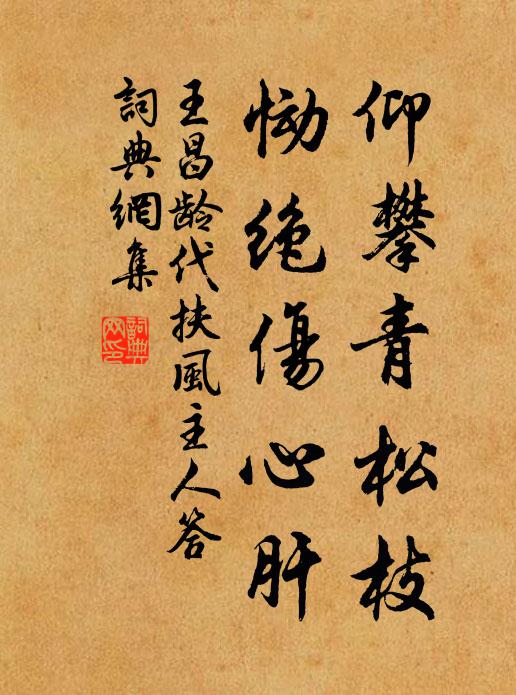 仰攀青松枝
恸绝傷心肝
王昌龄代扶風主人答
詞典網集
詞典
网印